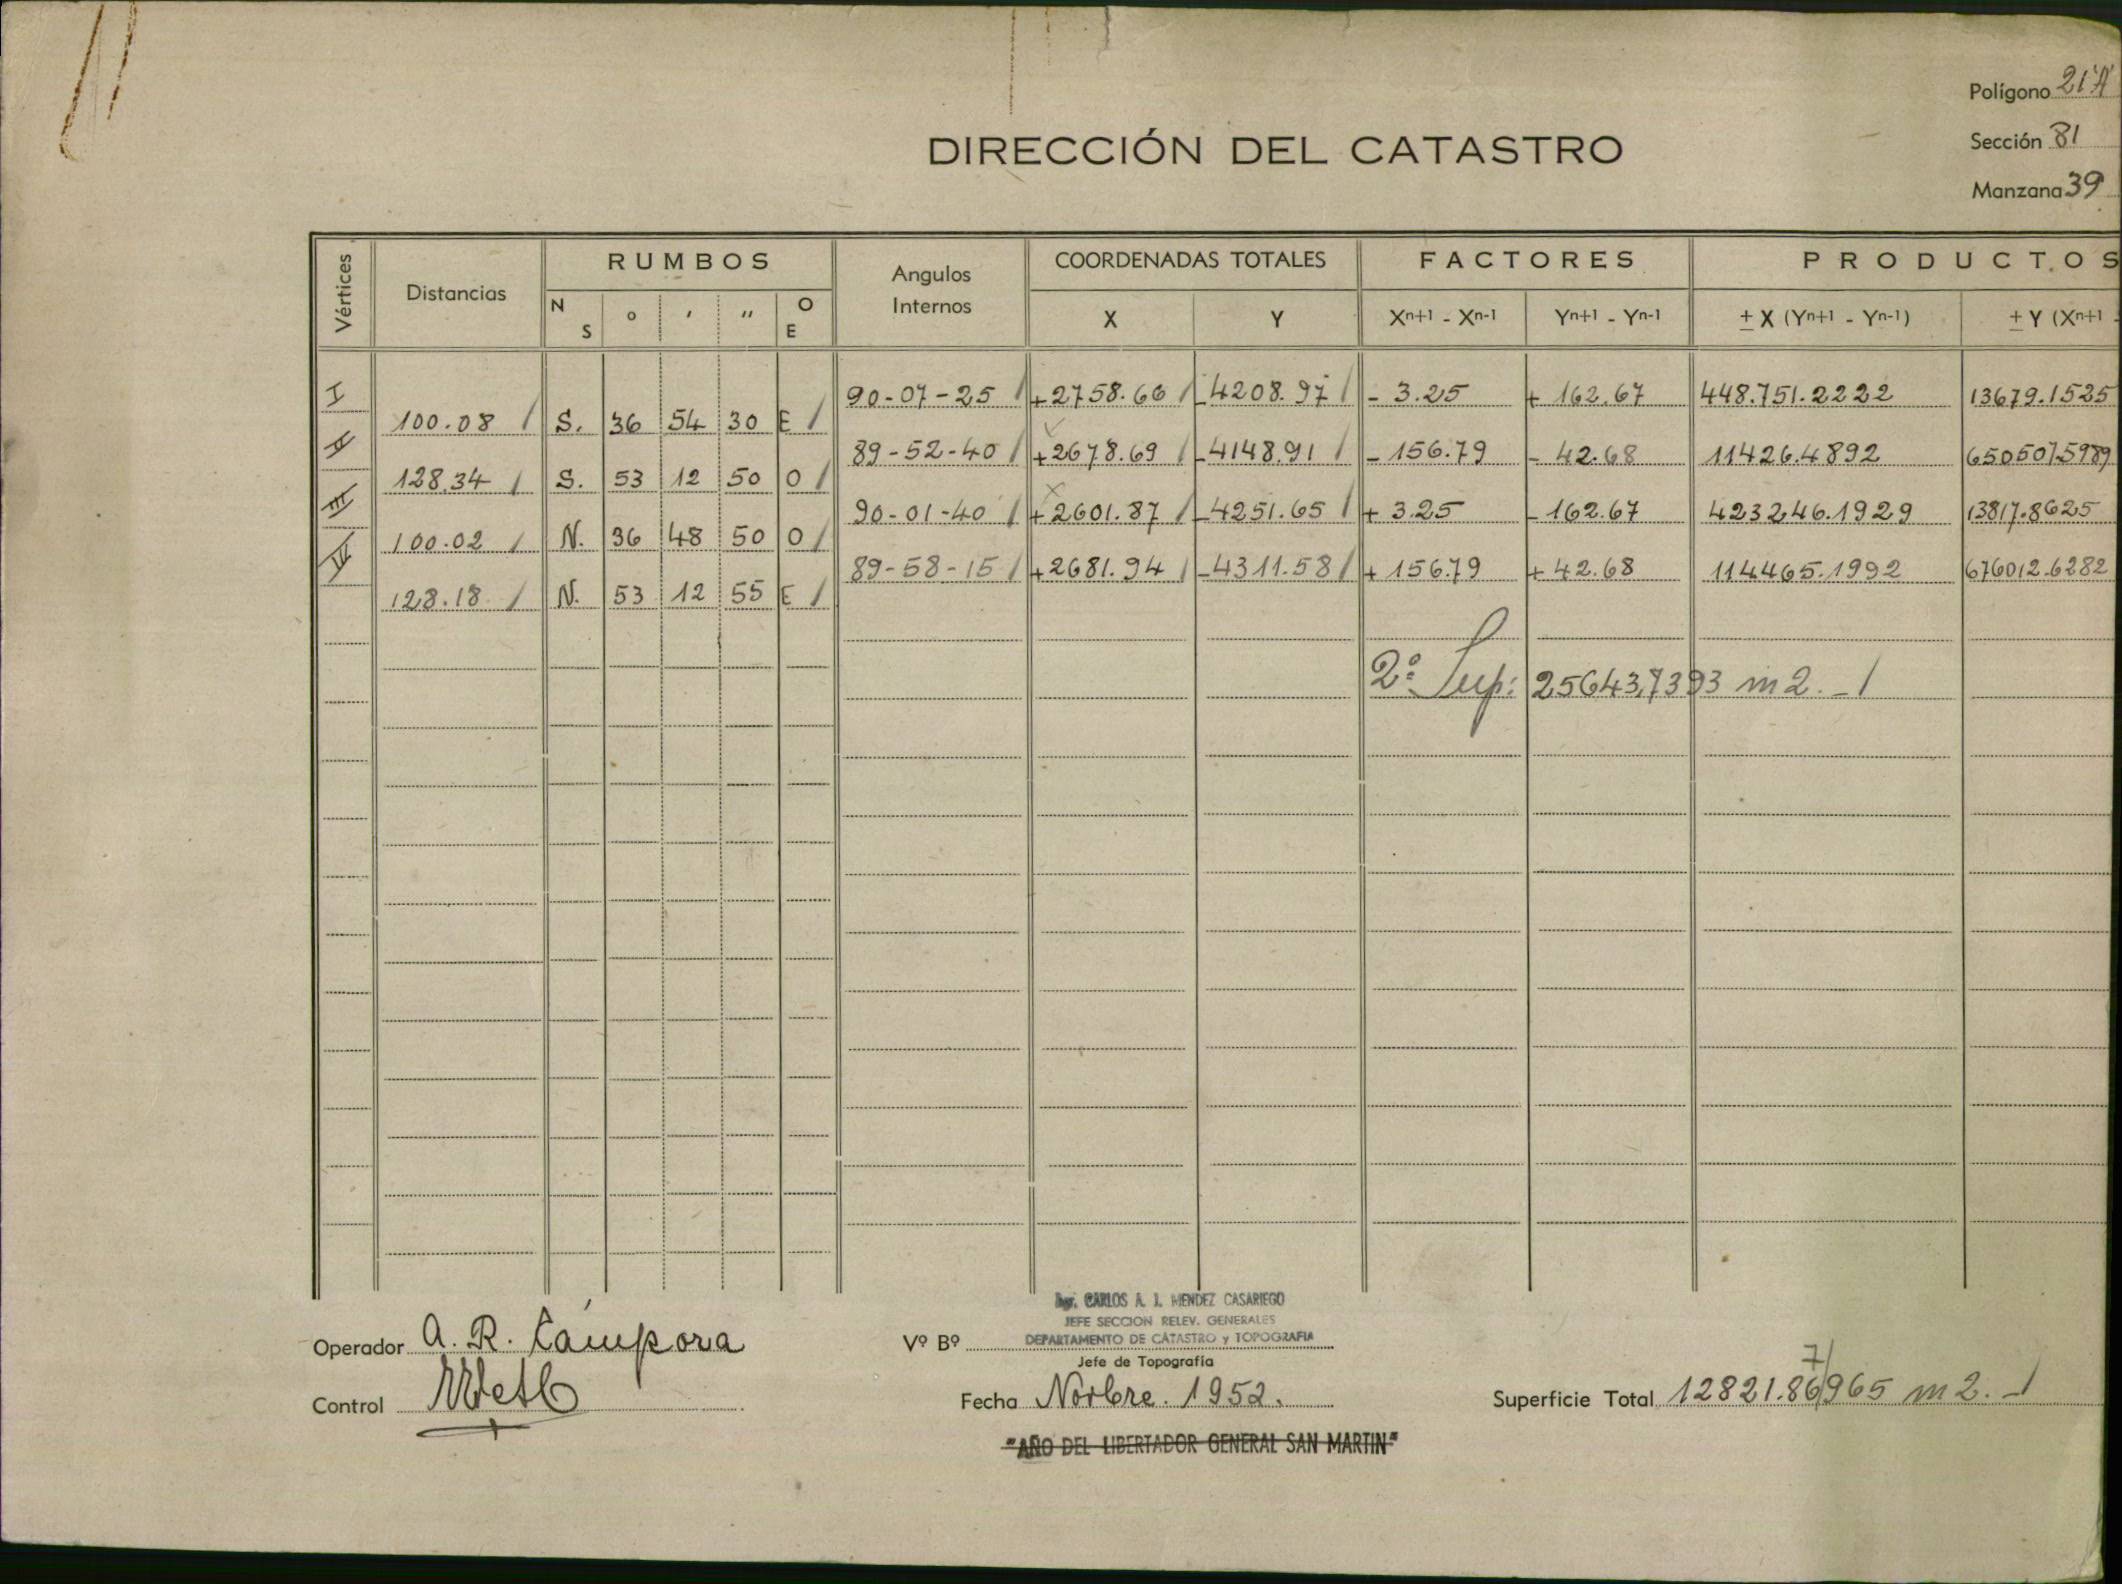 Polígono 21'A'
DIRECCIÓN DEL CATASTRO
Sección 81
Manzana 39
Vértices Distancias RUMBOS Angulos Internos COORDENADAS TOTALES FACTORES PRODUCTOS
N S ° ' " O E X Y Xn+1 - Xn-1 Yn+1 - Yn-1 ± X (Yn+1 - Yn-1) ± Y (Xn+1 -
I 90-07-25 / +2758.66 / -4208.97 / - 3.25 + 162.67 448.751.2222 13679.1525
100.08 / S. 36 54 30 E /
II 89-52-40 / +2678.69 / -4148.91 / - 156.79 - 42.68 11426.4892 650507.5989
128.34 / S. 53 12 50 O /
III 90-01-40 / +2601.87 / -4251.65 / + 3.25 - 162.67 423246.1929 13817.8625
100.02 / N. 36 48 50 O /
IV 89-58-15 / +2681.94 / -4311.58 / + 156.79 + 42.68 114465.1992 676012.6282
128.18 / N. 53 12 55 E /
2º Sup: 25643,7393 m2. -/
CARLOS A. J. MENDEZ CASARIEGO
JEFE SECCION RELEV. GENERALES
Operador A. R. Cámpora Vº Bº DEPARTAMENTO DE CATASTRO y TOPOGRAFIA
Jefe de Topografía
7/
Control Fecha Novbre. 1952. Superficie Total 12821.86965 m2. -/
"AÑO DEL LIBERTADOR GENERAL SAN MARTIN"